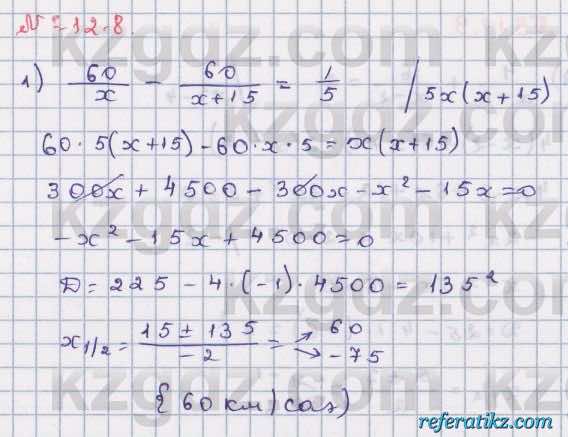 № 712.8.
1) 60/x − 60/(x+15) = 1/5 | 5x(x+15)
60·5(x+15)−60·x·5=x(x+15)
300x + 4500 − 300x − x² − 15x = 0
−x² − 15x + 4500 = 0
D = 225 − 4·(−1)·4500 = 135²
x₁/₂ = (15 ± 135)/−2 = → 60
→ −75
{60 км/саг)
referatikz.com
kzgdz.com